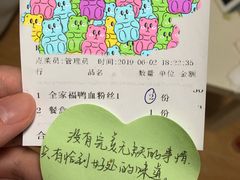 点菜员:管理员 时间:2019-06-02 18:22:35
品名 数量 单位 金额
1 全家福鸭血粉丝1 2 份
2 餐盒 份
没有完美无缺的事情
只有恰到好处的味道